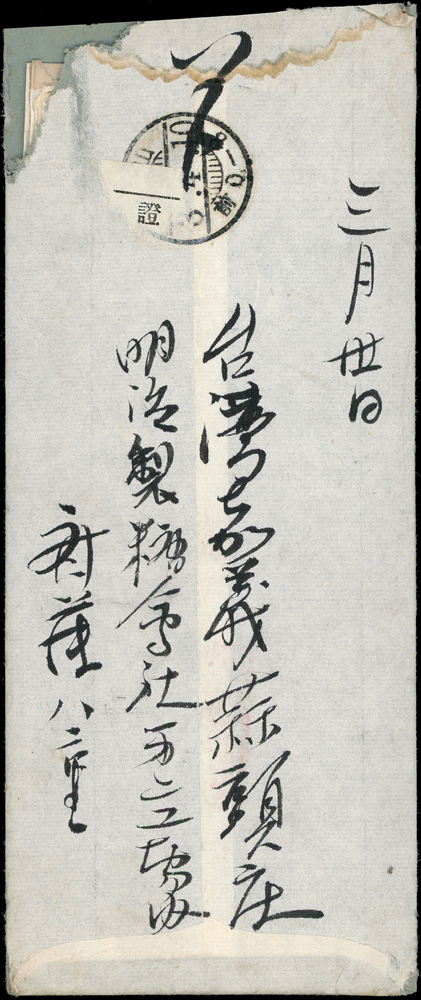 〆
三月廿日
台湾嘉義蒜頭庄
明治製糖會社第二工場内
斎藤八重
證